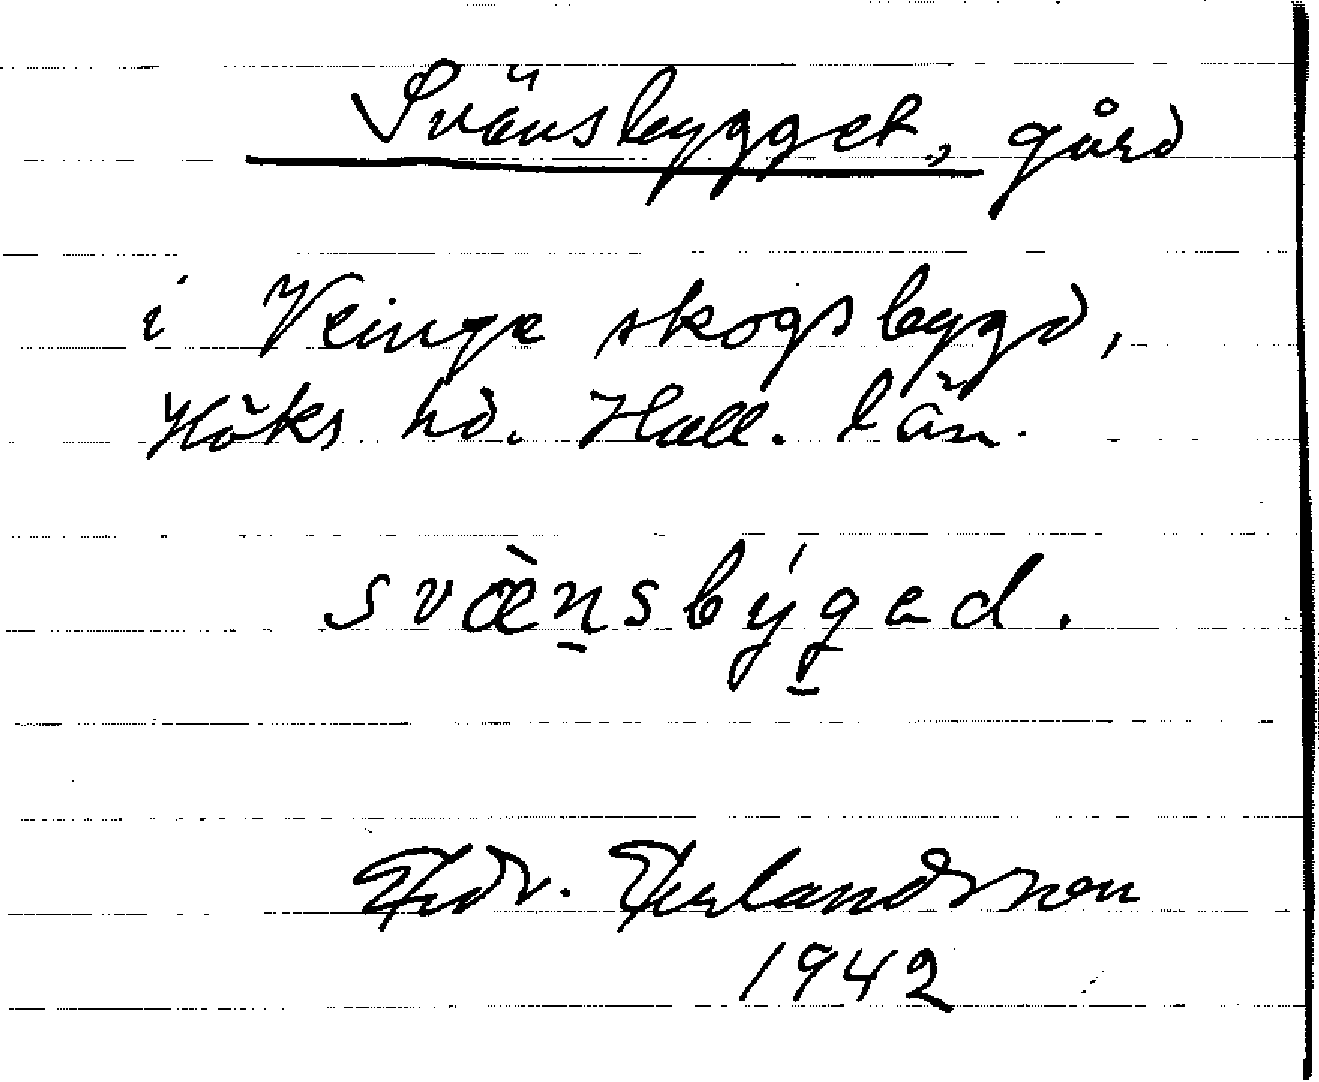 Svänsbygget, gård
i Veinge skogsbygd,
Höks hd. Hall. län.
svæ̀n̲sbýg̲ad.
Erlandsson
1942